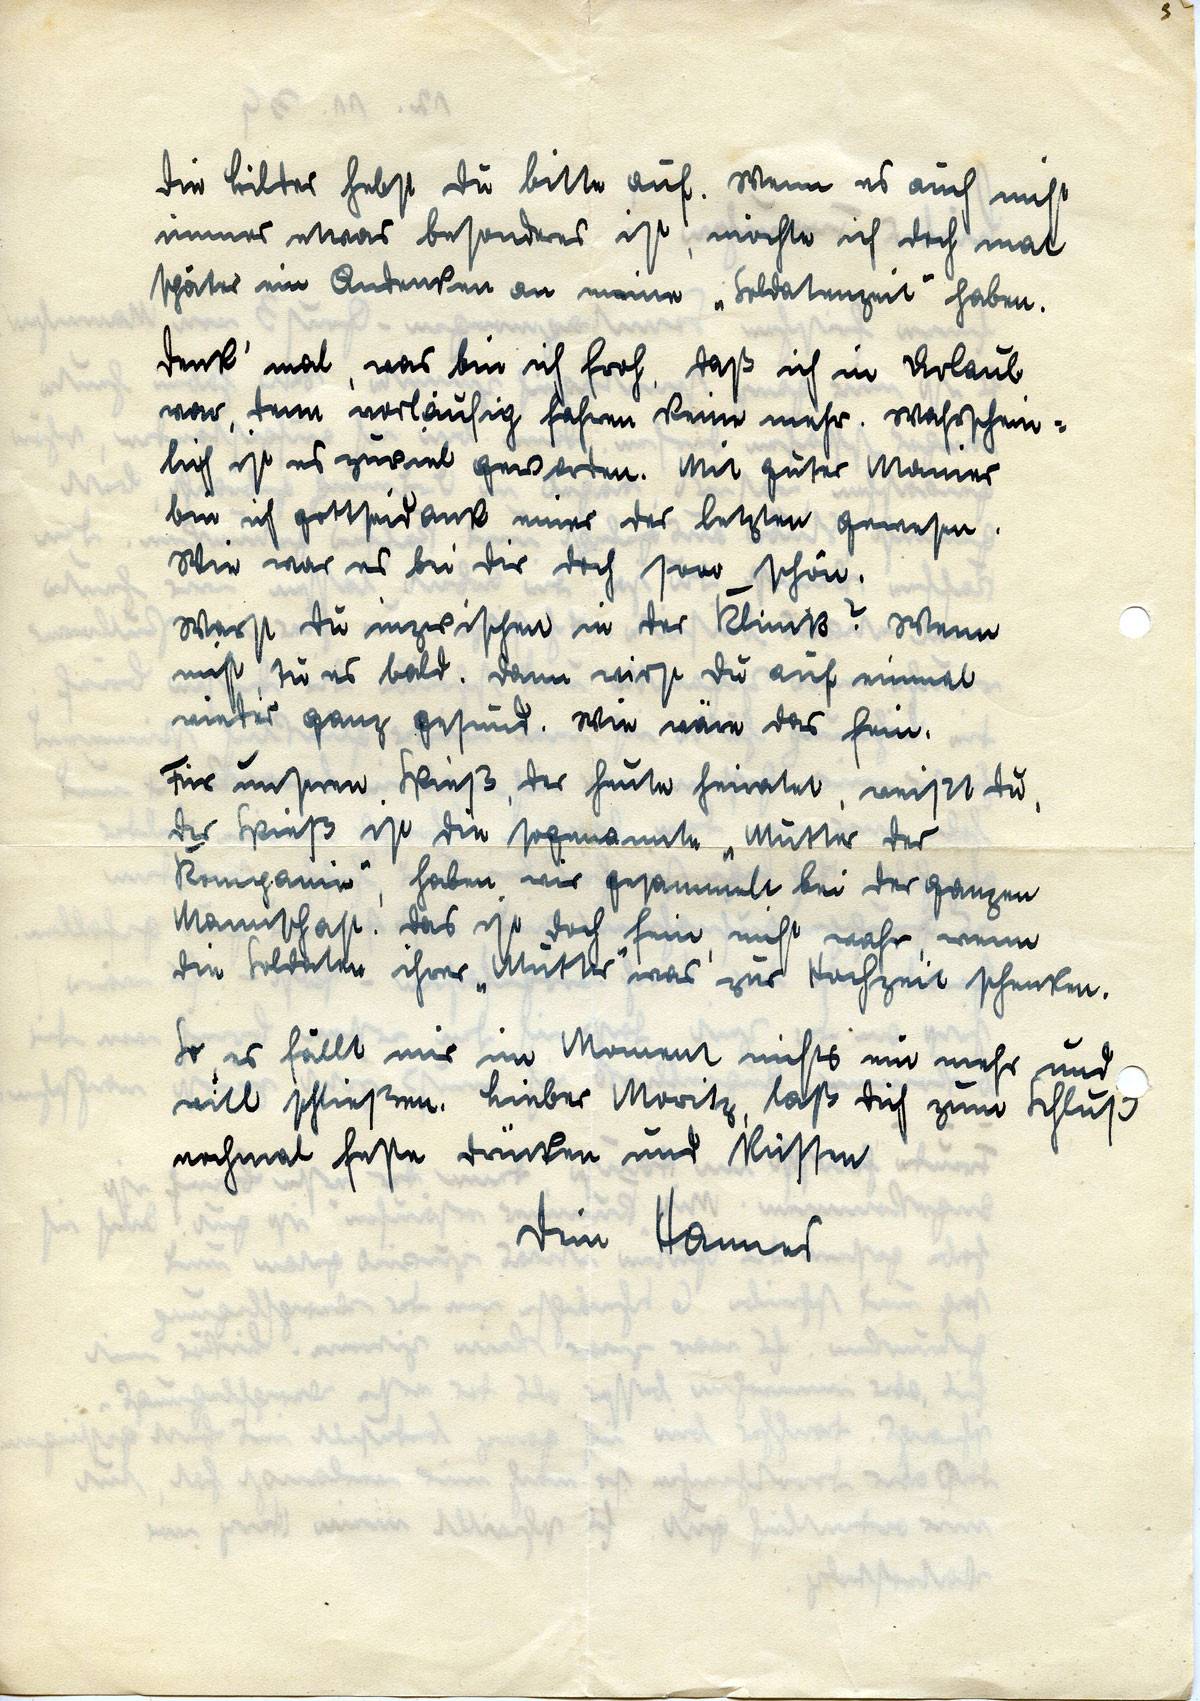 Die Bilder hebst Du bitte auf. Wenn es auch nicht
immer etwas besonderes ist, möchte ich doch mal
später ein Andenken an meine „Soldatenzeit" haben.
Denk' mal, was bin ich froh, daß ich in Urlaub
war, denn vorläufig fahren keine mehr. Wahrschein=
lich ist es zuviel geworden. Mit guter Manier
bin ich gottseidank einer der letzten gewesen.
Wie war es bei Dir doch sooo schön.
Warst Du inzwischen in der Klinik? Wenn
nicht, tu es bald. Dann wirst Du auf einmal
wieder ganz gesund. Wie wäre das fein.
Für unseren Spieß, der heute heiratet, weißt Du,
der Spieß ist die sogenannte „Mutter der
Kompanie", haben wir gesammelt bei der ganzen
Mannschaft. Das ist doch fein, nicht wahr, wenn
die Soldaten ihrer „Mutter" was zur Hochzeit schenken.
So, es fällt mir im Moment nichts ein mehr und
will schließen. Lieber Moritz, laß Dich zum Schluß
nochmal feste drücken und küssen
Dein Hannes